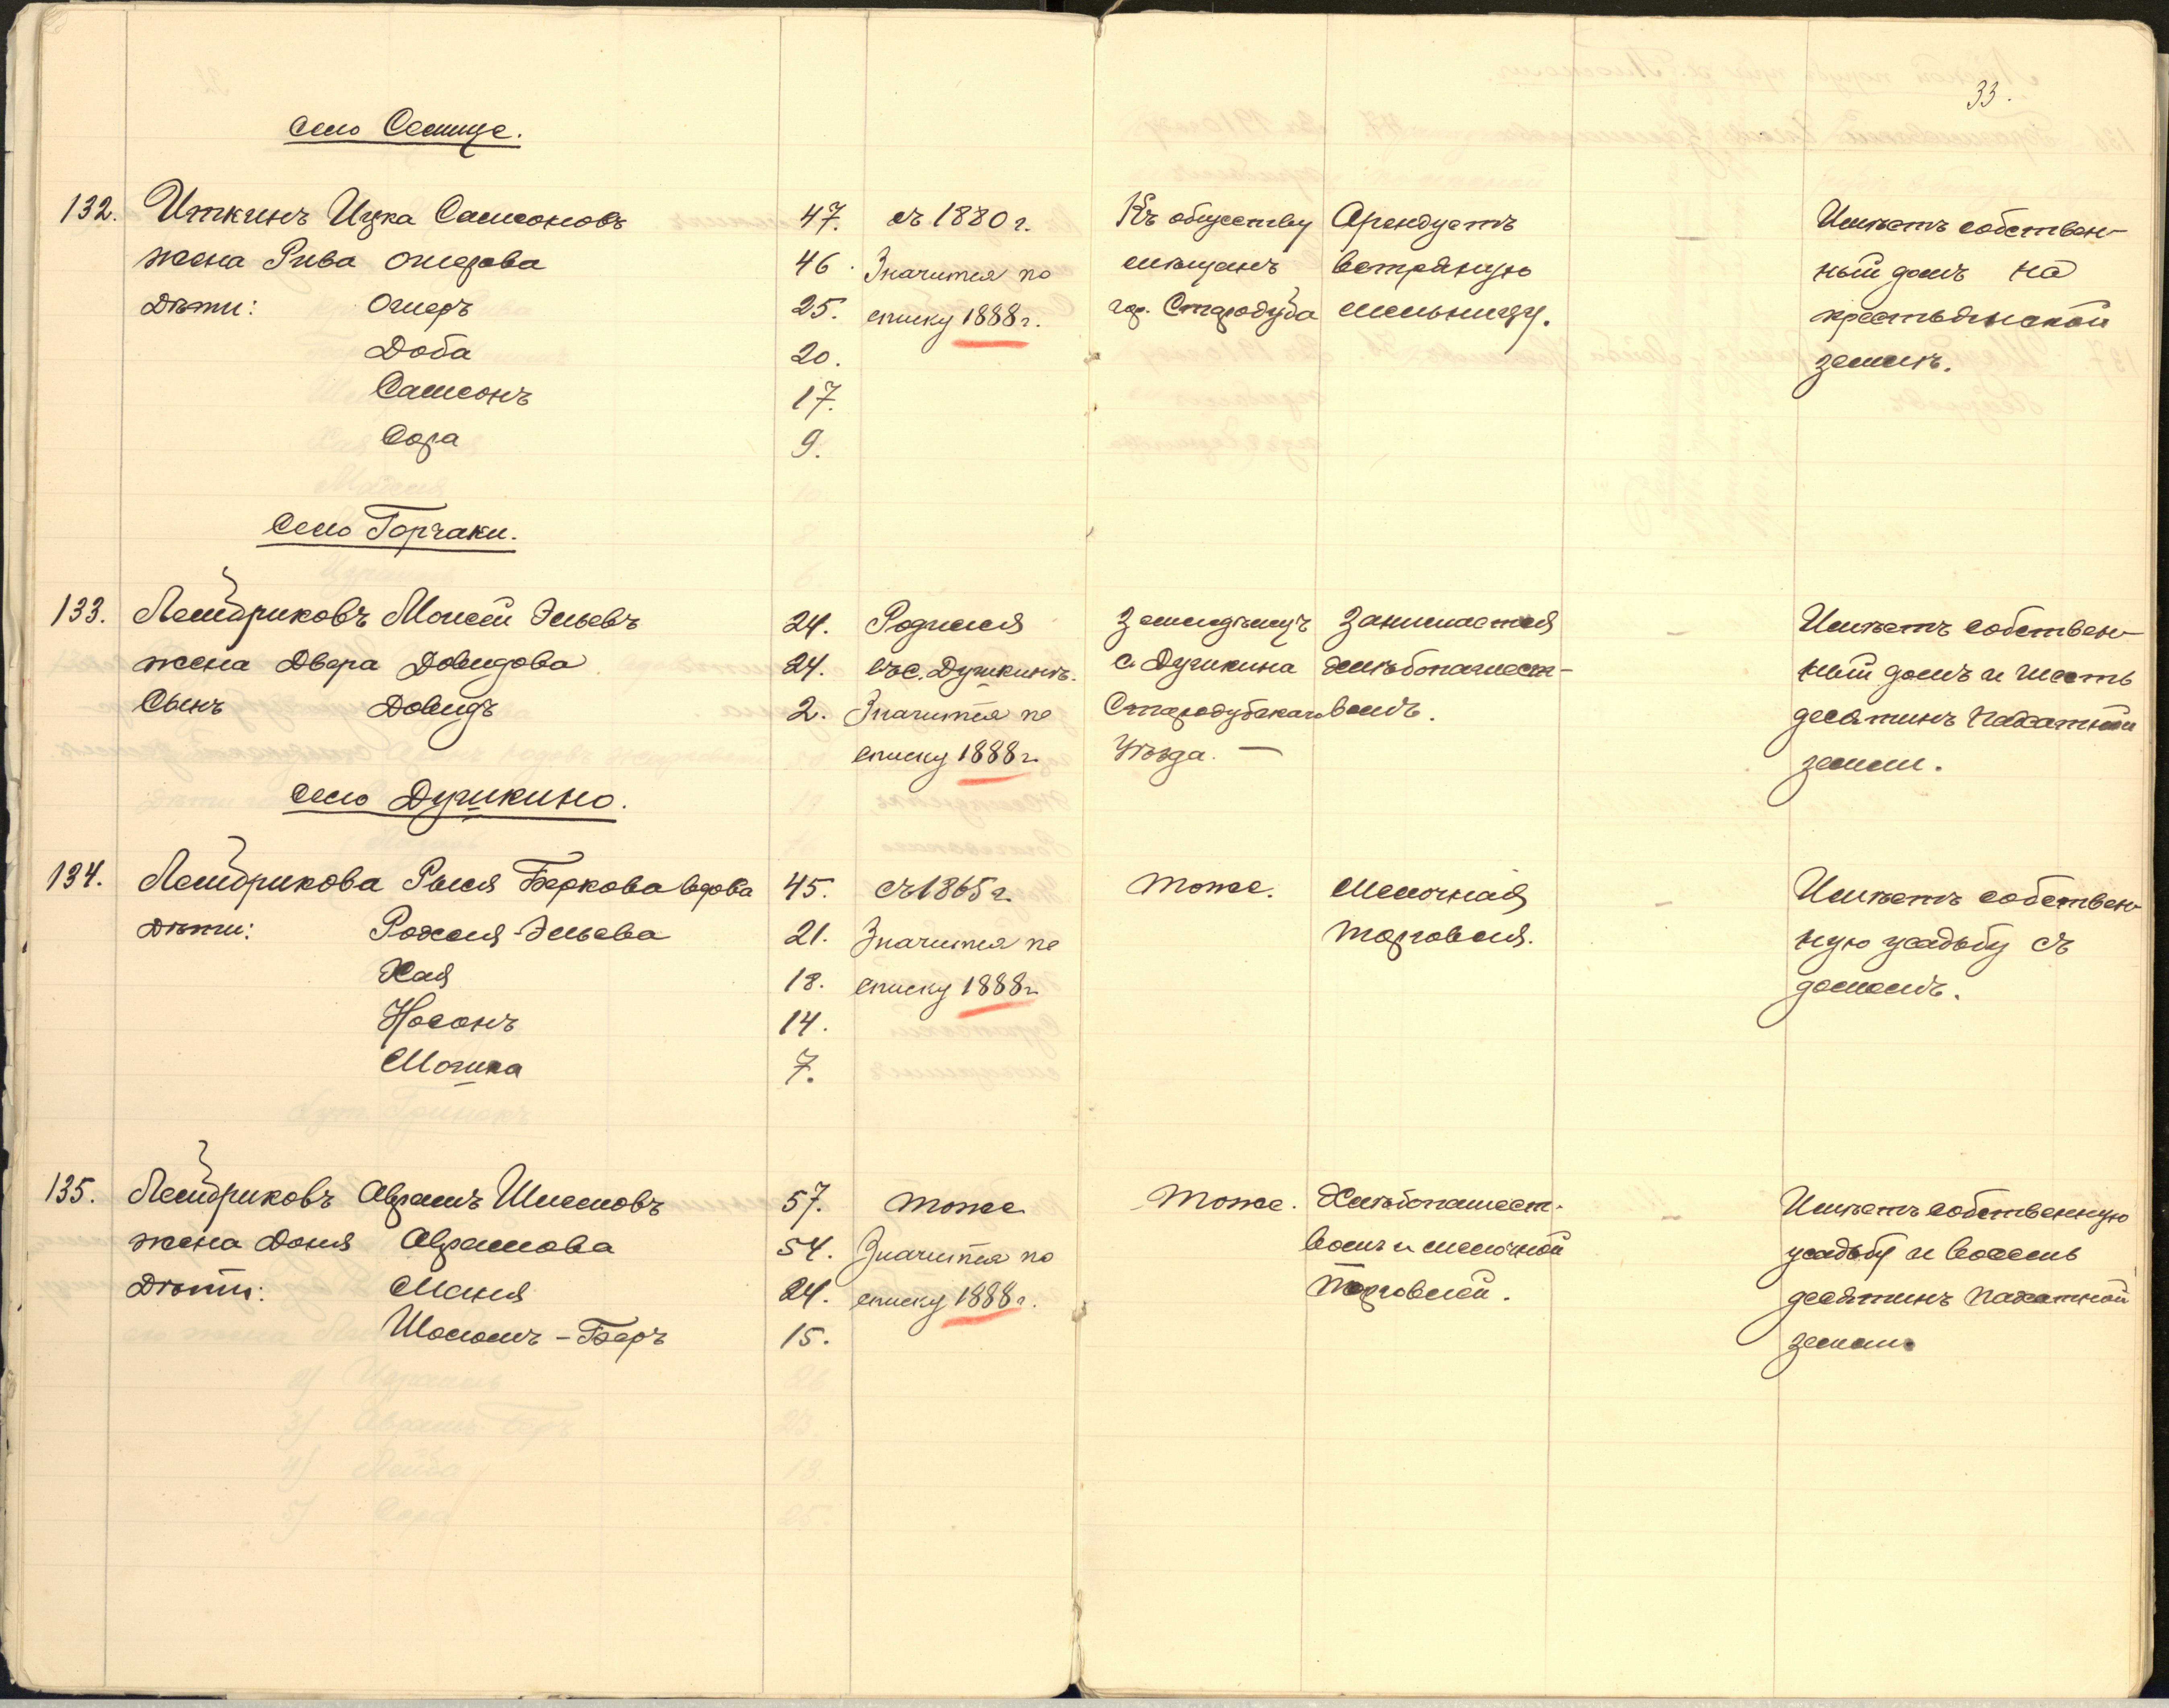 33.
село Селище.
132. Иткинъ Ицка Самсоновъ 47. съ 1880 г. Къ обществу Арендуетъ — Имѣетъ собствен-
жена Рива Ошерова 46. Значится по мѣщанъ ветряную ный домъ на
Дѣти: Ошеръ 25. списку 1888 г. гор. Стародуба мельницу. крестьянской
Доба 20. землѣ.
Самсонъ 17.
Сора 9.
Село Горчаки.
133. Лейдриковъ Моисей Эльевъ 24. Родился Земледѣлецъ Занимается — Имѣетъ собствен-
жена Двера Довидова 24. въ с. Душкинѣ. с. Душкина хлѣбопашест- ный домъ и шесть
Сынъ Довидъ 2. Значится по Стародубскаго вомъ. десятинъ пахатной
списку 1888 г. Уѣзда. — земли.
село Душкино.
134. Лейдрикова Рыся Беркова вдова 45. съ 1865 г. Тоже. Мелочная — Имѣетъ собствен-
Дѣти: Рохля-Эльева 21. Значится по торговля. ную усадьбу съ
Хая 18. списку 1888 г. домомъ.
Носонъ 14.
Мошка 7.
135. Лейдриковъ Абрамъ Шлемовъ 57. тоже Тоже. Хлѣбопашест- — Имѣетъ собственную
жена Доня Абрамова 54. Значится по вомъ и мелочной усадьбу и восемь
Дѣти: Маня 24. списку 1888 г. торговлей. десятинъ пахатной
Шоломъ-Беръ 15. земли.